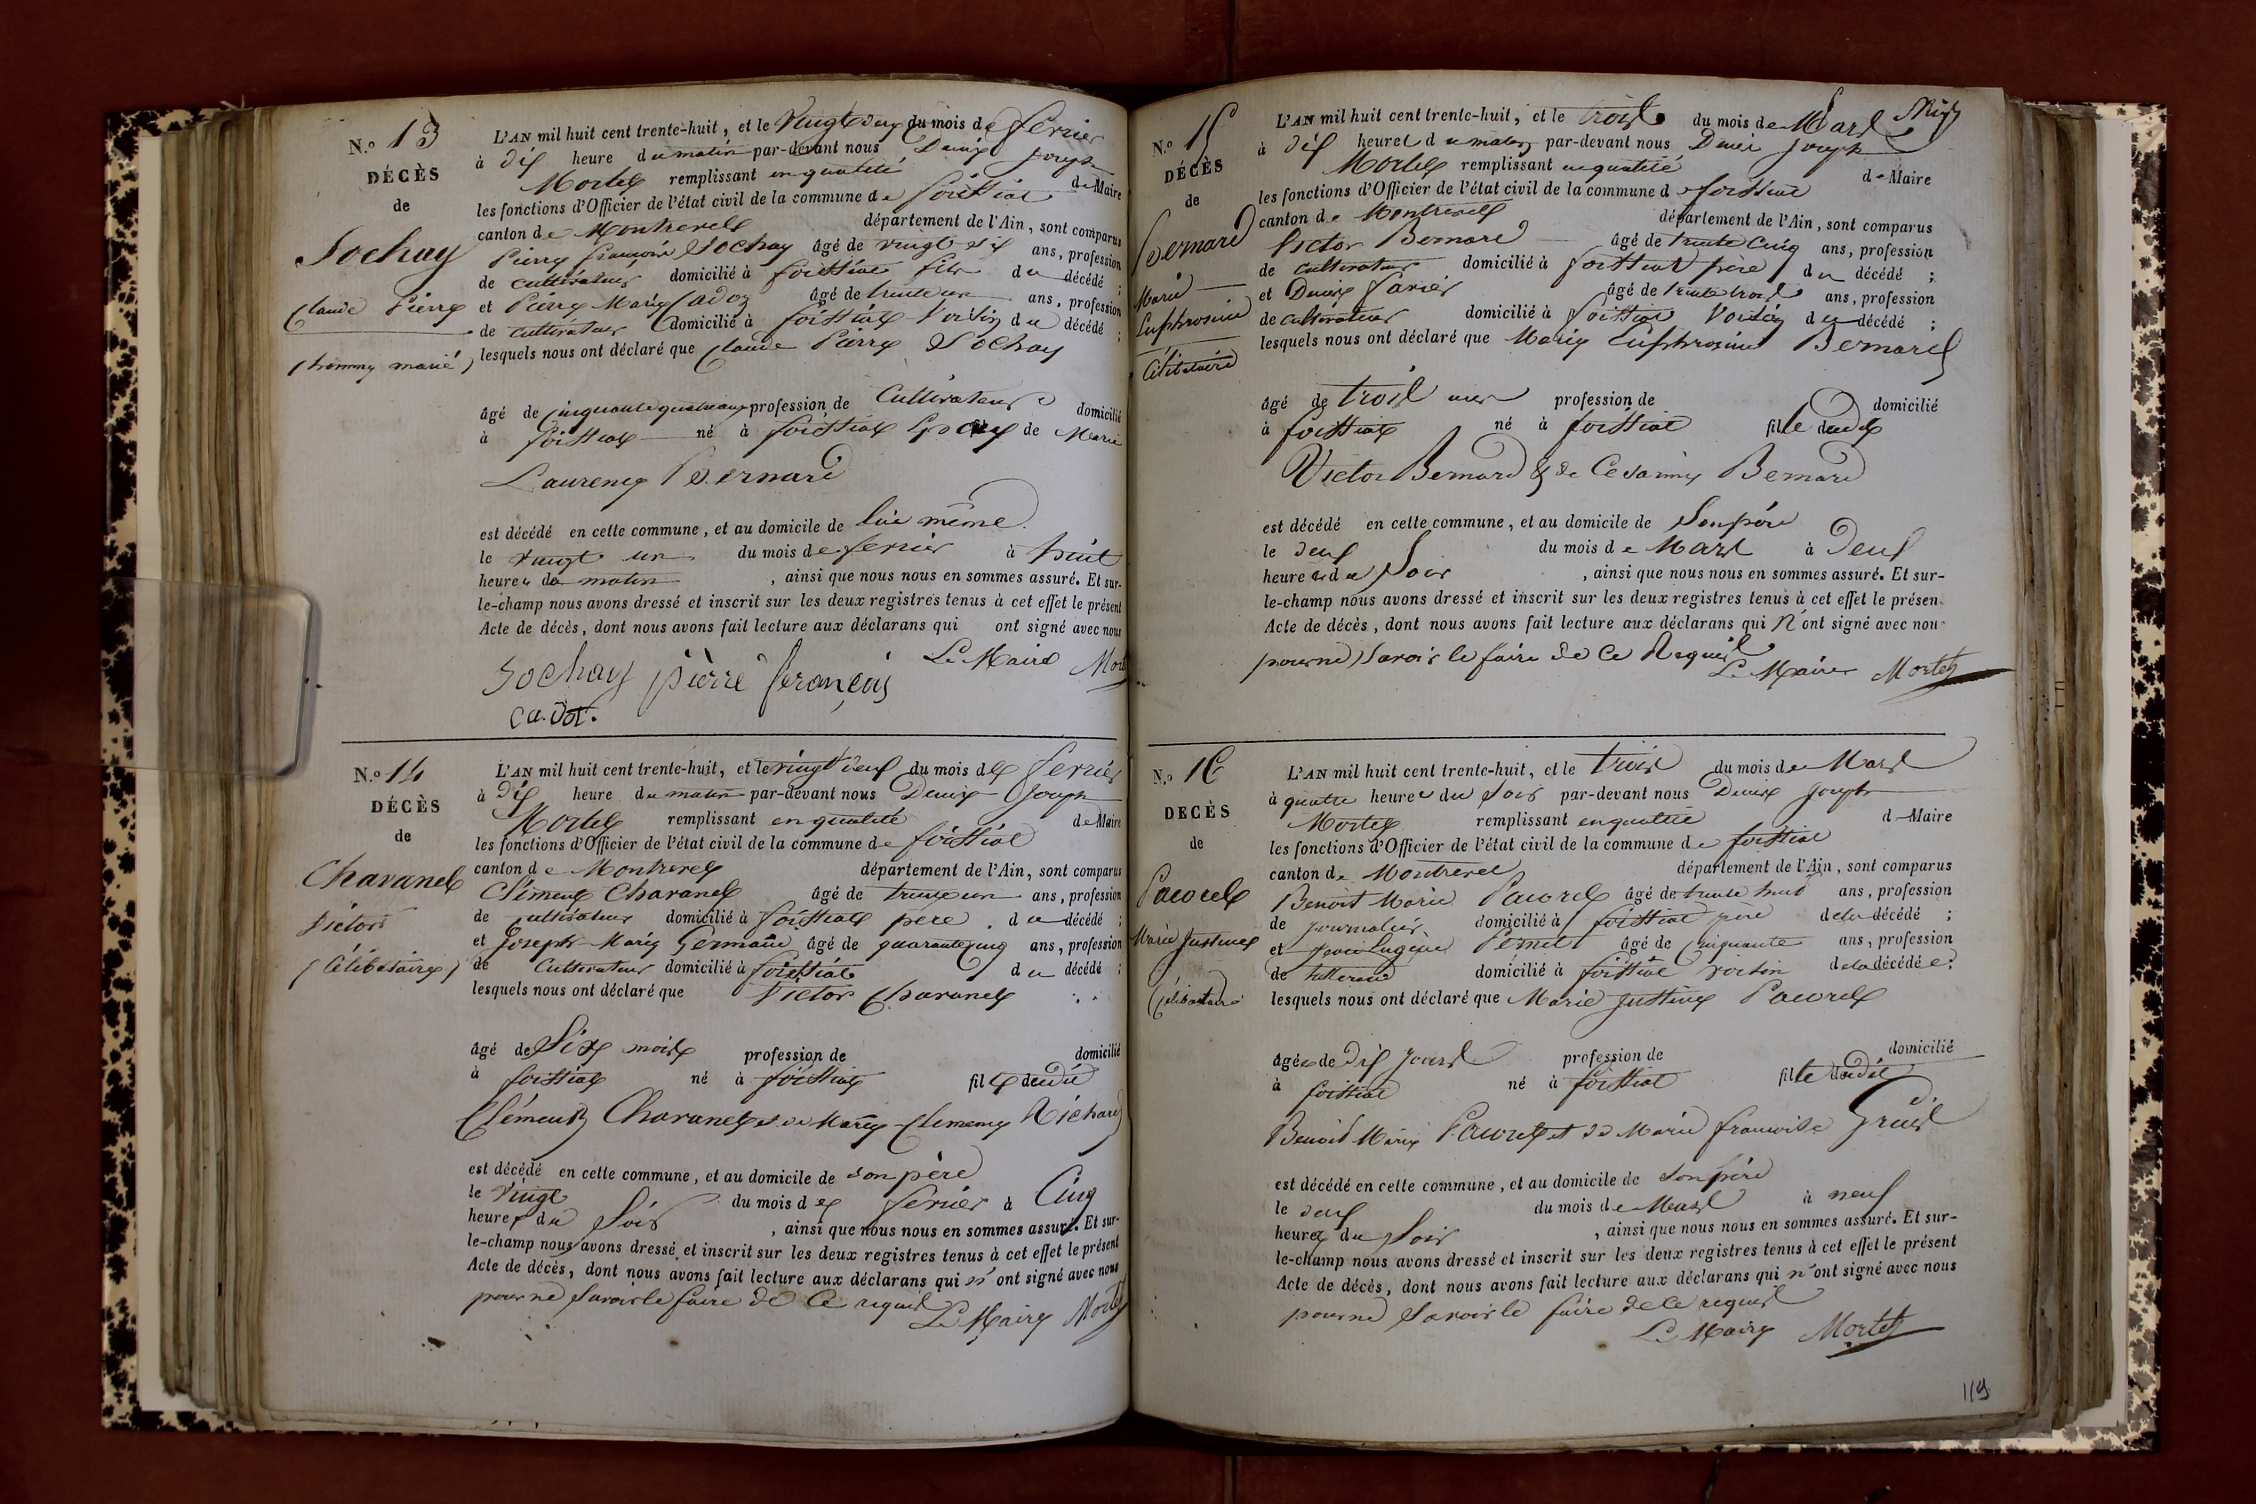 N.º 13
DÉCÈS
de
Sochay
Claude Pierre
(homme marié)
L'AN mil huit cent trente-huit, et le vingt deux du mois de fevrier
à dix heure du matin par-devant nous Denis Joseph
Mortel remplissant en qualité de Maire
les fonctions d'Officier de l'état civil de la commune de foissiat
canton de Montrevel département de l'Ain, sont comparus
Pierre françois Sochay âgé de vingt six ans, profession
de cultivateur domicilié à foissiat fils du décédé ;
et Pierre Marie Cadoz âgé de trente un ans, profession
de cultivateur domicilié à foissiat Voisin du décédé ;
lesquels nous ont déclaré que Claude Pierre Sochay
âgé de cinquante quatre ans profession de Cultivateur domicilié
à foissiat né à foissiat de Marie
Laurence Bernard
est décédé en cette commune, et au domicile de lui même
le vingt un du mois de fevrier à huit
heures du matin , ainsi que nous nous en sommes assuré. Et sur-
le-champ nous avons dressé et inscrit sur les deux registres tenus à cet effet le présent
Acte de décès, dont nous avons fait lecture aux déclarans qui ont signé avec nous
Le Maire Mort
Sochay pièrre françois
cadot.
N.º 14
DÉCÈS
de
Chavanel
Victor
(Célibataire)
L'AN mil huit cent trente-huit, et le vingt deux du mois de fevrier
à dix heure du matin par-devant nous Denis Joseph
Mortel remplissant en qualité de Maire
les fonctions d'Officier de l'état civil de la commune de foissiat
canton de Montrevel département de l'Ain, sont comparus
Clément Chavanel âgé de trente un ans, profession
de cultivateur domicilié à foissiat père du décédé ;
et Joseph Marie Germain âgé de quarante cinq ans, profession
de Cultivateur domicilié à foissiat du décédé ;
lesquels nous ont déclaré que Victor Chavanel
âgé de Six mois profession de domicilié
à foissiat né à foissiat fils dudit
Clément Chavanel et de Marie Clemence Richard
est décédé en cette commune, et au domicile de son père
le vingt du mois de fevrier à Cinq
heures du Soir , ainsi que nous nous en sommes assuré. Et sur-
le-champ nous avons dressé et inscrit sur les deux registres tenus à cet effet le présent
Acte de décès, dont nous avons fait lecture aux déclarans qui n'ont signé avec nous
pour ne savoir le faire de ce requis
Le Maire Mortel
N.º 15
DÉCÈS
de
Bernard
Marie
Euphrosine
Célibataire
L'AN mil huit cent trente-huit, et le trois du mois de Mars
à dix heures du matin par-devant nous Denis Joseph
Mortel remplissant en qualité de Maire
les fonctions d'Officier de l'état civil de la commune de foissiat
canton de Montrevel département de l'Ain, sont comparus
Victor Bernard âgé de trente Cinq ans, profession
de cultivateur domicilié à foissiat père du décédé ;
et Denis Favier âgé de trente trois ans, profession
de cultivateur domicilié à foissiat Voisin du décédé ;
lesquels nous ont déclaré que Marie Euphrosine Bernard
âgé de trois ans profession de domicilié
à foissiat né à foissiat fille dudit
Victor Bernard & de Césarine Bernard
est décédé en cette commune, et au domicile de Son père
le deux du mois de Mars à Deux
heures du Soir , ainsi que nous nous en sommes assuré. Et sur-
le-champ nous avons dressé et inscrit sur les deux registres tenus à cet effet le présen
Acte de décès, dont nous avons fait lecture aux déclarans qui N'ont signé avec nou
pour ne Savoir le faire de ce Requis
Le Maire Mortel
N.º 16
DÉCÈS
de
Pauvrel
Marie Justine
(Célibataire
L'AN mil huit cent trente-huit, et le trois du mois de Mars
à quatre heures du Soir par-devant nous Denis Joseph
Mortel remplissant en qualité d Maire
les fonctions d'Officier de l'état civil de la commune de foissiat
canton de Montrevel département de l'Ain, sont comparus
Benoit Marie Pauvrel âgé de trente huit ans, profession
de journalier domicilié à foissiat père de la décédé ;
et Eugène Pernet âgé de cinquante ans, profession
de domicilié à foissiat voisin de la décédée ;
lesquels nous ont déclaré que Marie Justine Pauvrel
âgée de dix jours profession de domicilié
à foissiat né à foissiat fille dudit
Benoit Marie Pauvrel et de Marie françoise
est décédé en cette commune, et au domicile de son père
le deux du mois de Mars à neuf
heures du Soir , ainsi que nous nous en sommes assuré. Et sur-
le-champ nous avons dressé et inscrit sur les deux registres tenus à cet effet le présent
Acte de décès, dont nous avons fait lecture aux déclarans qui n'ont signé avec nous
pour ne Savoir le faire de ce requis
Le Maire Mortel
119